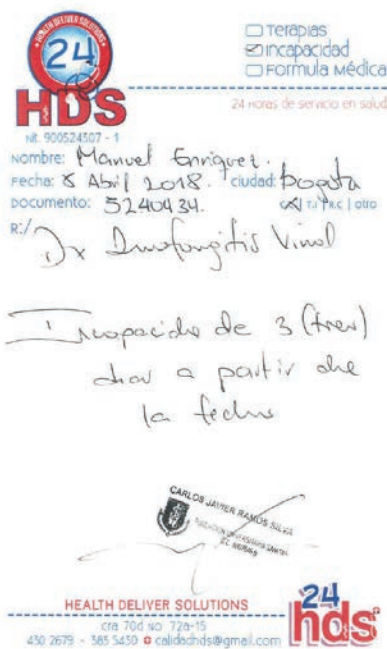 HEALTH DELIVER SOLUTIONS
24
HDS
Nit. 900524507 - 1
Terapias
Incapacidad
Formula Médica
24 Horas de servicio en salud
Nombre: Manuel Enriquez.
Fecha: 8 Abril 2018. Ciudad: Bogota
Documento: 5240434. C.C T.I R.C | otro
R:/ Dx Rinofaringitis Viral
Incapacidad de 3 (tres)
dias a partir de
la fecha
CARLOS JAVIER RAMOS SILVA
HEALTH DELIVER SOLUTIONS
cra 70d No 72a-15
430 2679 - 385 5430 calidadhds@gmail.com
24
hds